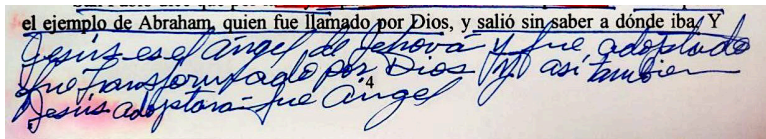 el ejemplo de Abraham, quien fue llamado por Dios, y salió sin saber a dónde iba. Y
Jesús es el ángel de Jehová y fue adoptado
fue transformado por Dios y así tambien
4
Jesús adoptara fue ángel